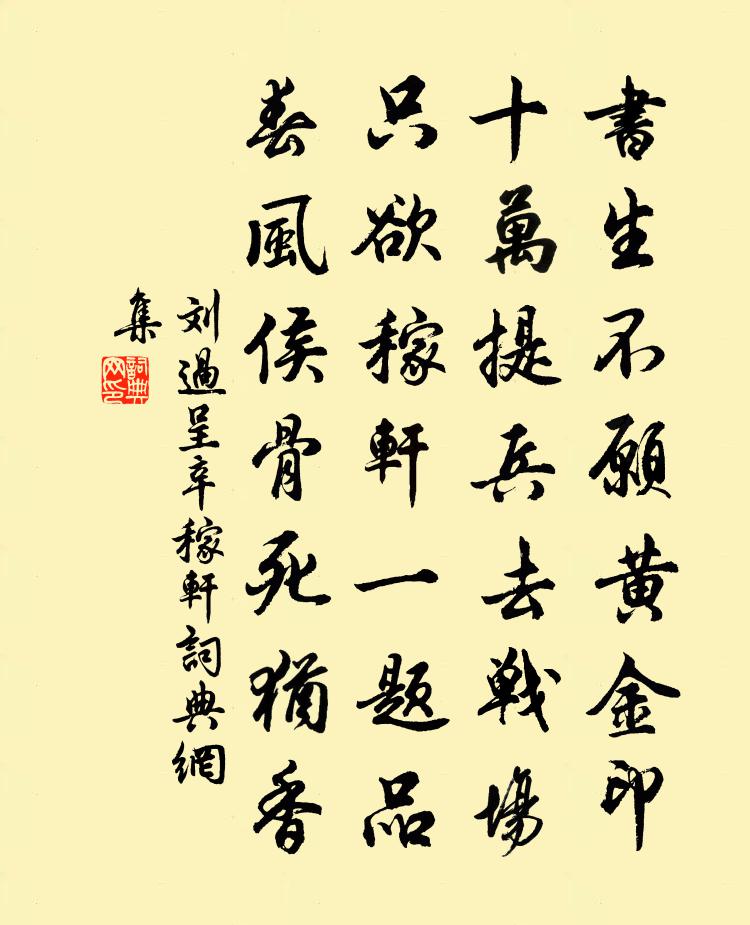 書生不願黄金印
十萬提兵去戦場
只欲稼軒一題品
春風侯骨死猶香
刘過呈辛稼軒詞典網
集
詞典
网印